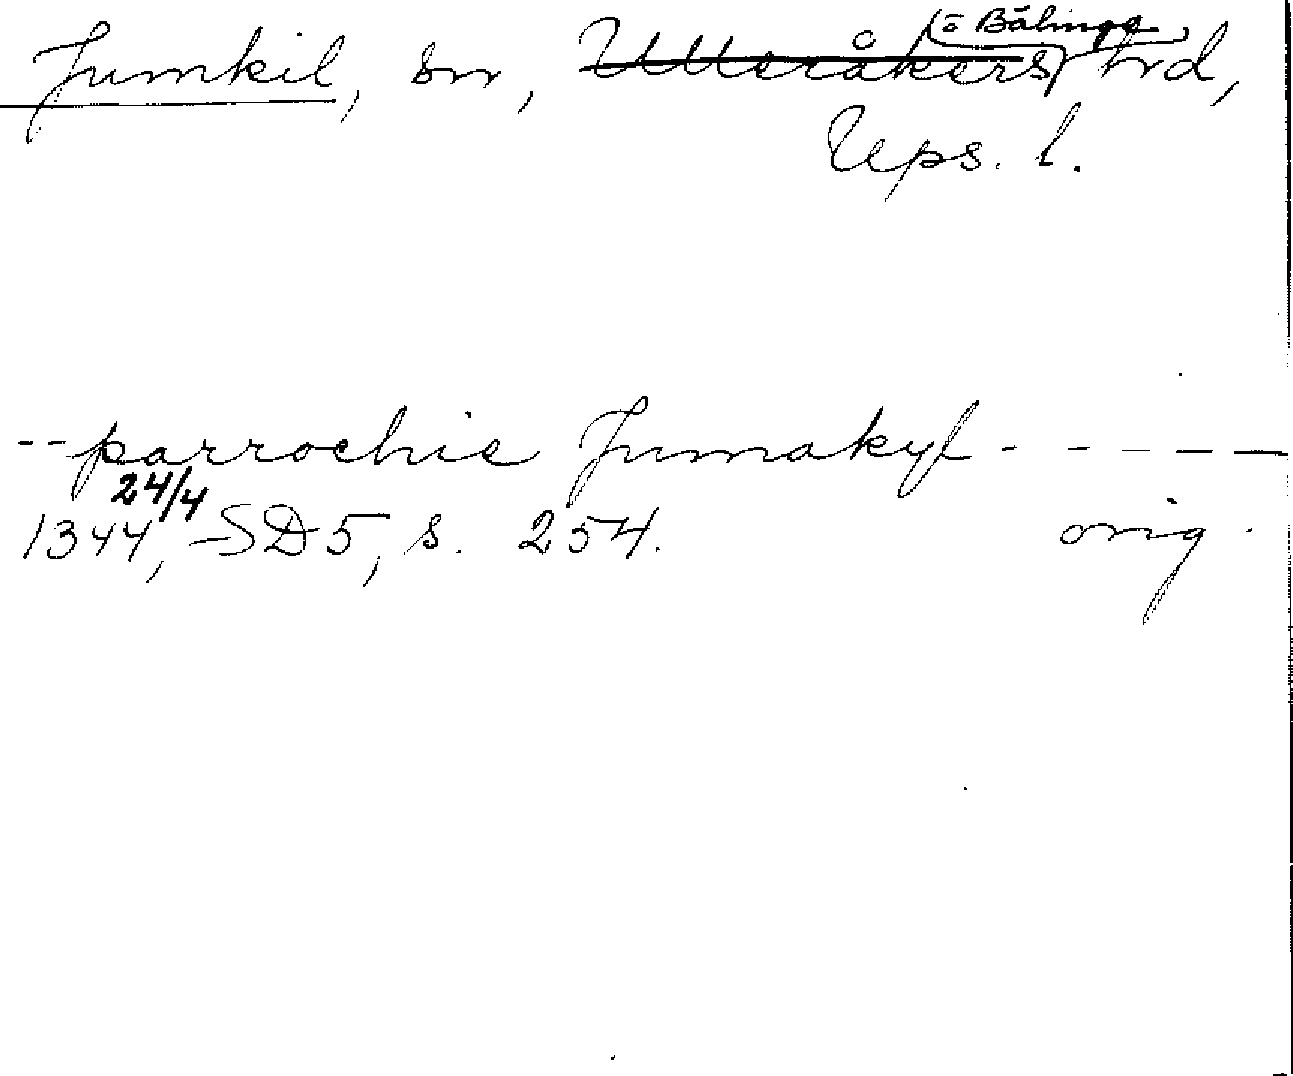 Jumkil, sn, Ulleråkers (= Bälinge) hd,
Ups. l.
-- parrochie Jumakyl - - - - -
1344 24/4, SD 5, s. 254. orig.